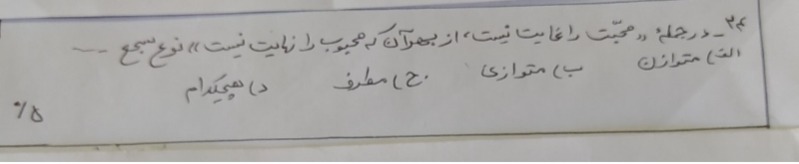 ۲۴- در جملهٔ «محبّت را غایت نیست، از بهر آن که محبوب را نهایت نیست» نوع سجع ....
الف) متوازن ب) متوازی ج) مطرف د) هیچکدام
۰/۵